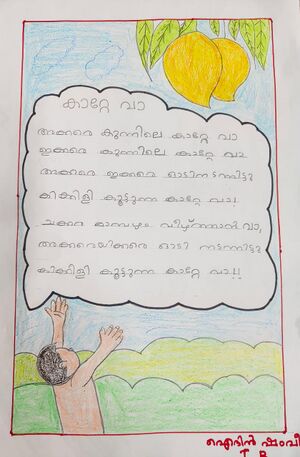 കാറ്റേ വാ
അക്കരെ കുന്നിലെ കാറ്റേ വാ
ഇക്കരെ കുന്നിലെ കാറ്റേ വാ
അക്കരെ ഇക്കരെ ഓടിനടന്നിട്ടു
കിക്കിളി കൂട്ടുന്ന കാറ്റേ വാ!
ചക്കര മാമ്പഴം വീഴ്ത്താൻ വാ,
അക്കരെയിക്കരെ ഓടി നടന്നിട്ടു
കിക്കിളി കൂട്ടുന്ന കാറ്റേ വാ!!
ഐദിൻ ഷംവീ
I B